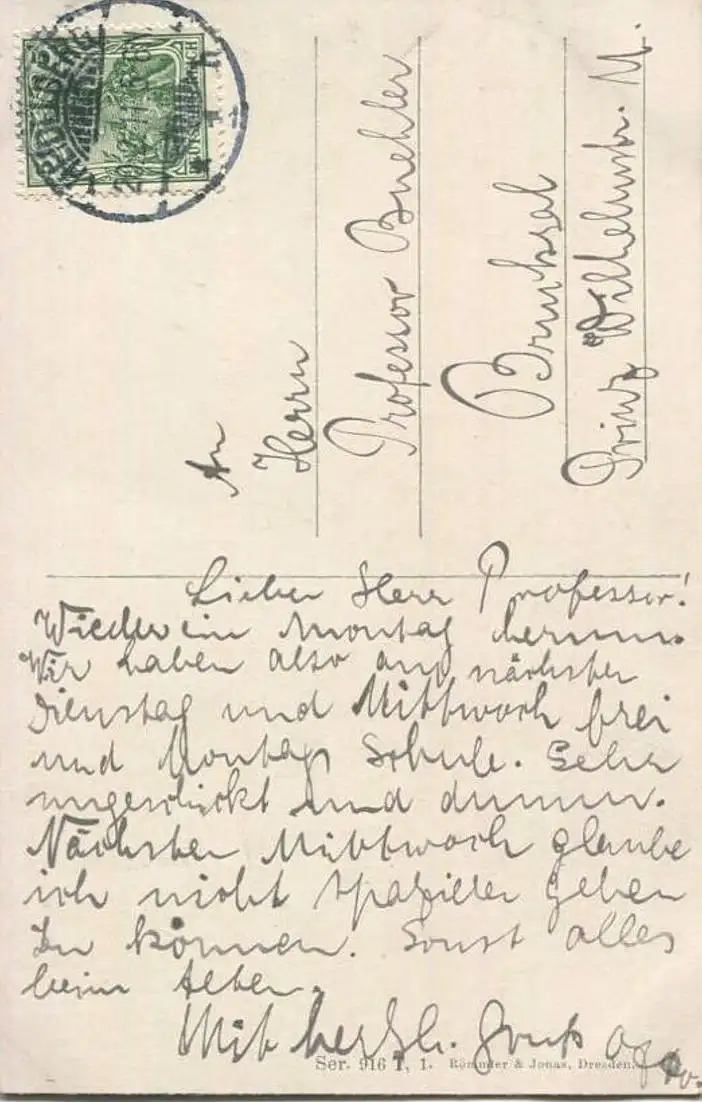 HEIDELBERG
An
Herrn
Professor Buehler
Bruchsal
Prinz Wilhelmstr. M.
Lieber Herr Professor!
Wieder ein Montag herum.
Wir haben also am nächsten
Dienstag und Mittwoch frei
und Montags Schule. Sehr
ungeschickt und dumm.
Nächsten Mittwoch glaube
ich nicht spazieren gehen
zu können. Sonst alles
beim Alten.
Mit herzl. Gruß
Ser. 916 T, 1. Römmler & Jonas, Dresden.